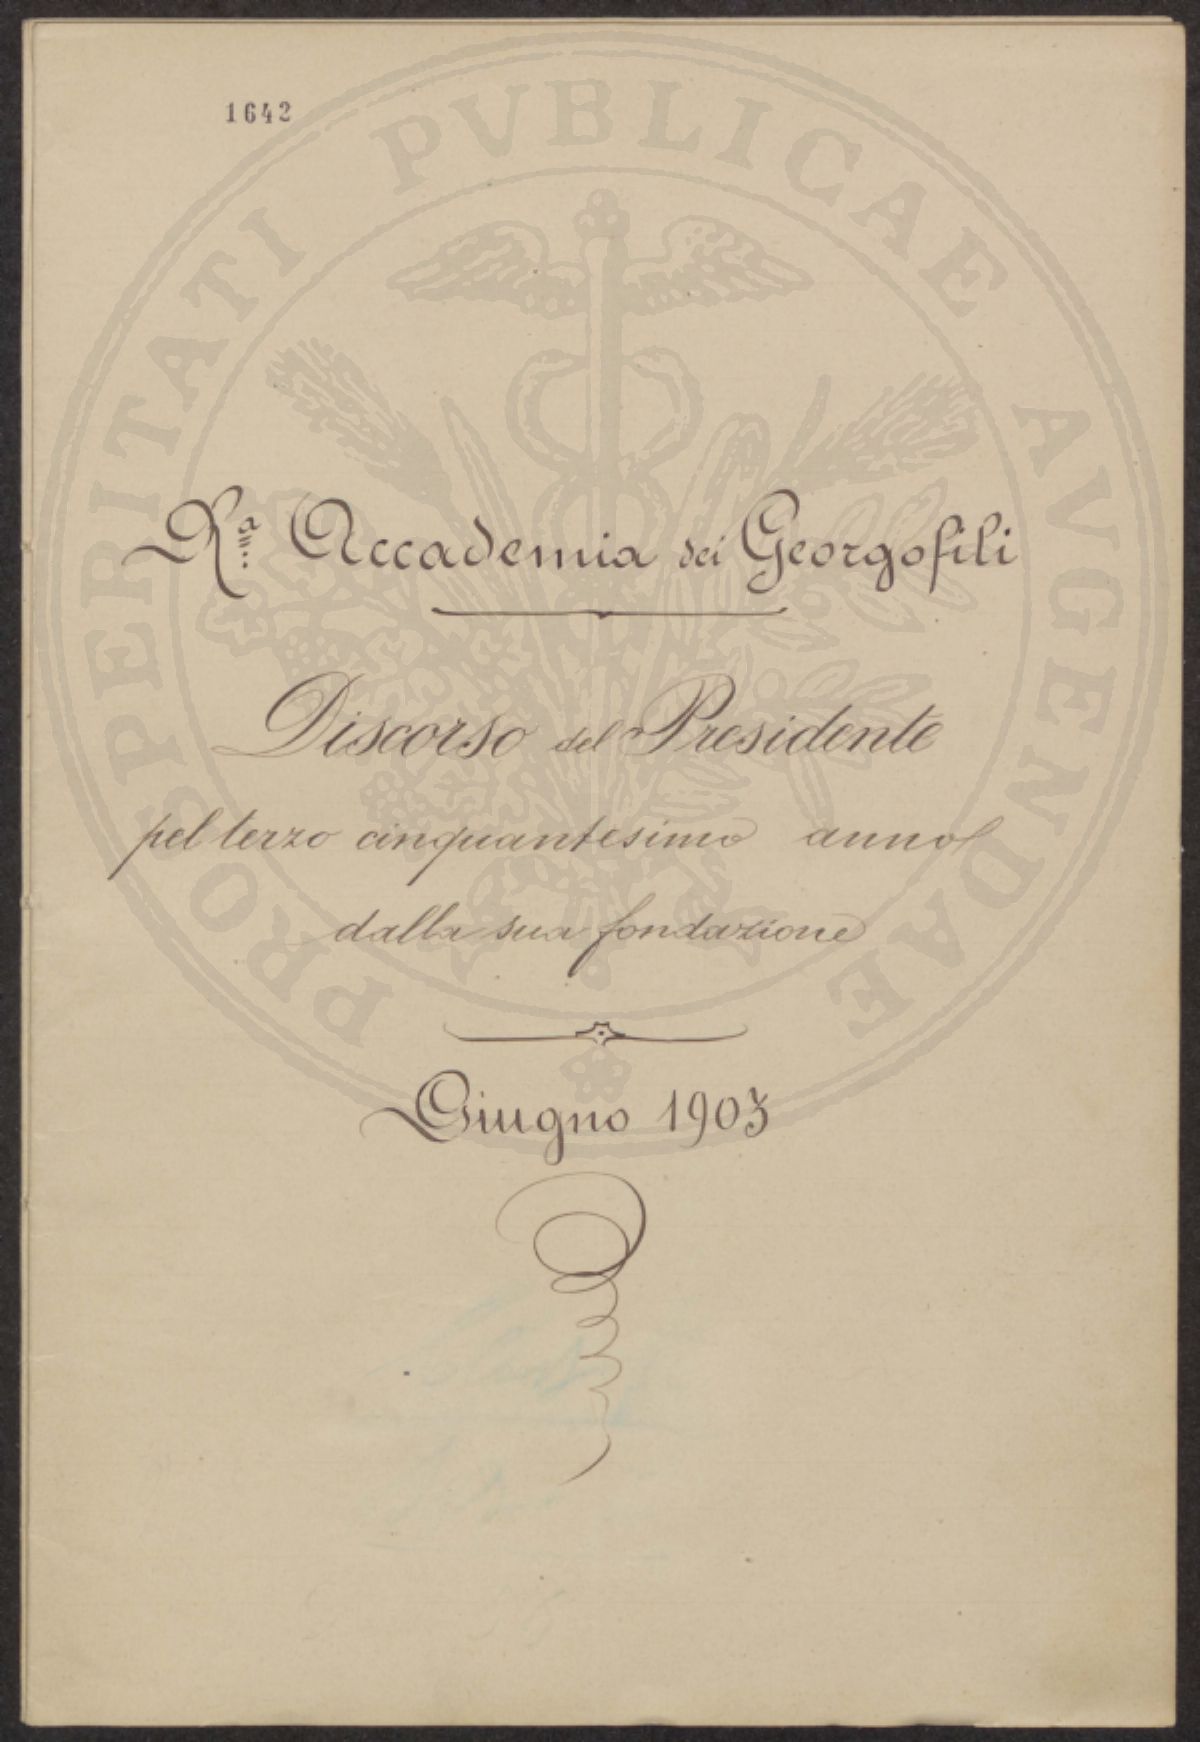 1642
PROSPERITATI PVBLICAE AVGENDAE
Rª Accademia dei Georgofili
Discorso del Presidente
pel terzo cinquantesimo anno
dalla sua fondazione
Giugno 1903